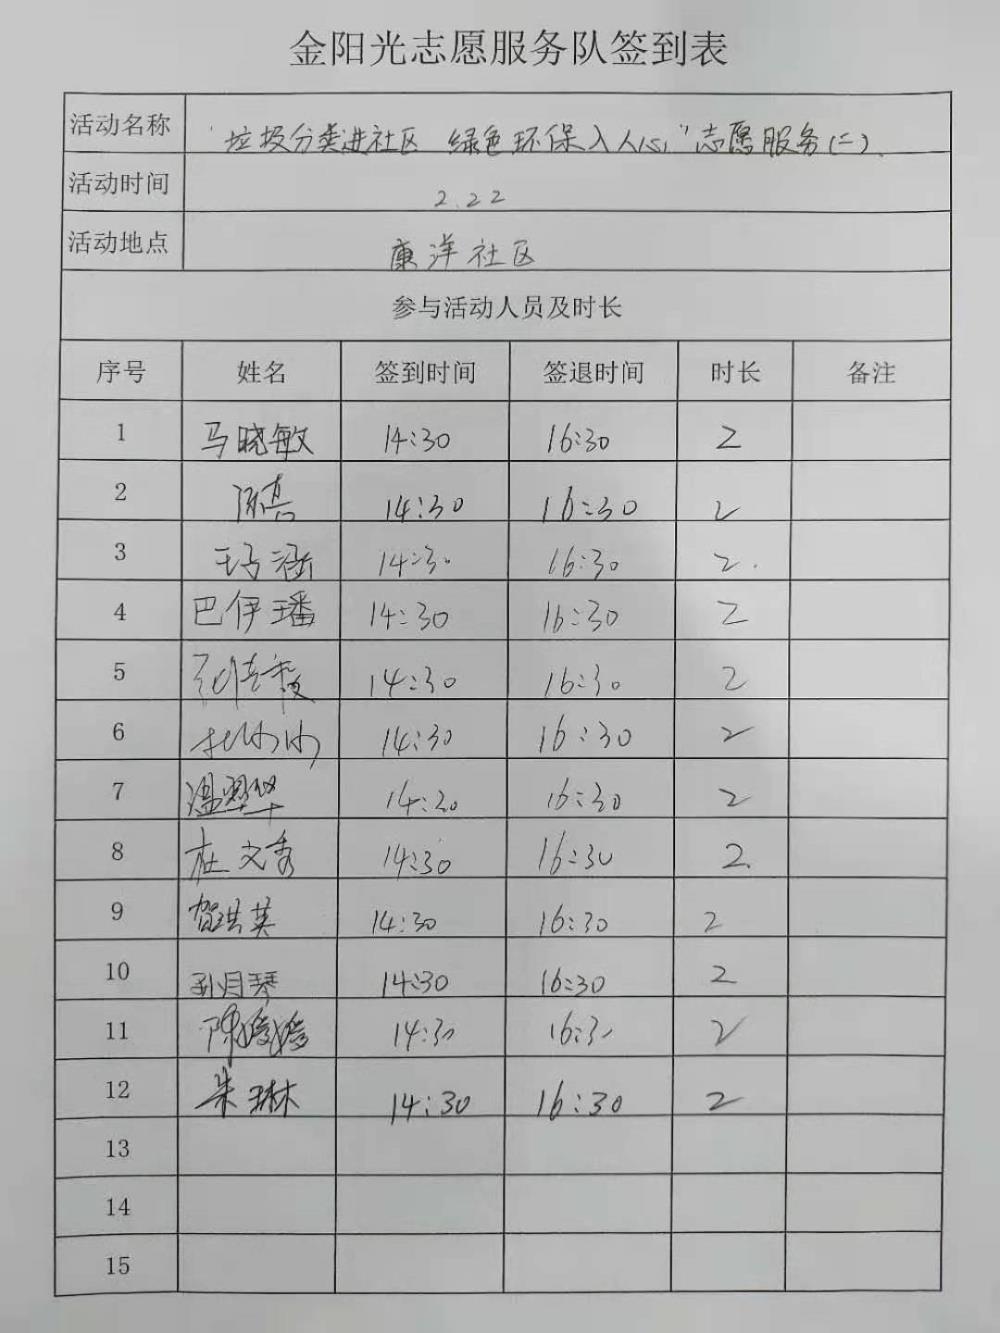 金阳光志愿服务队签到表
活动名称 "垃圾分类进社区 绿色环保入人心"志愿服务(二).
活动时间 2.22
活动地点 康洋社区
参与活动人员及时长
序号 姓名 签到时间 签退时间 时长 备注
1 马晓敏 14:30 16:30 2
2 陈真 14:30 16:30 2
3 14:30 16:30 2.
4 巴伊璠 14:30 16:30 2
5 14:30 16:30 2
6 14:30 16:30 2
7 温翠华 14:20 16:30 2
8 杜文秀 14:30 16:30 2.
9 贺洪英 14:30 16:30 2
10 孙月琴 14:30 16:30 2
11 陈媛媛 14:30 16:30 2
12 朱琳 14:30 16:30 2
13
14
15